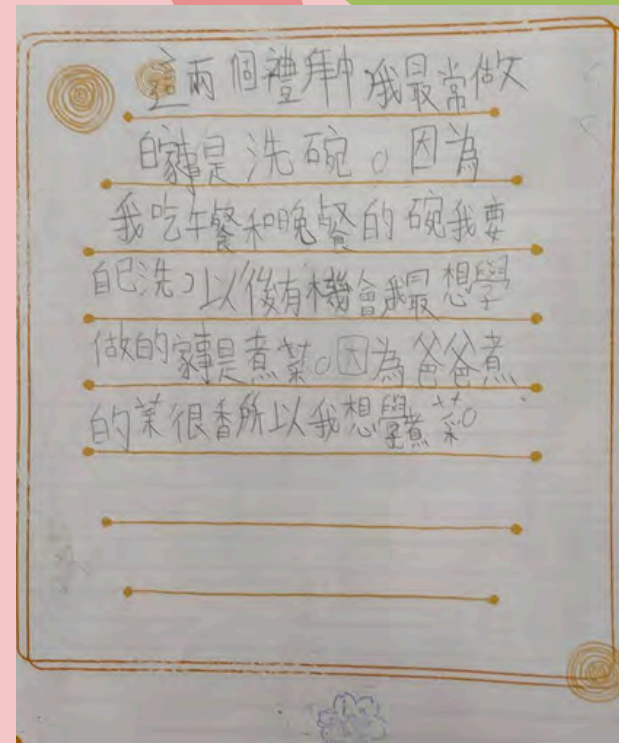 這兩個禮拜中我最常做
的家事是洗碗。因為
我吃午餐和晚餐的碗我要
自己洗,以後有機會我最想學
做的家事是煮菜。因為爸爸煮
的菜很香所以我想學煮菜。